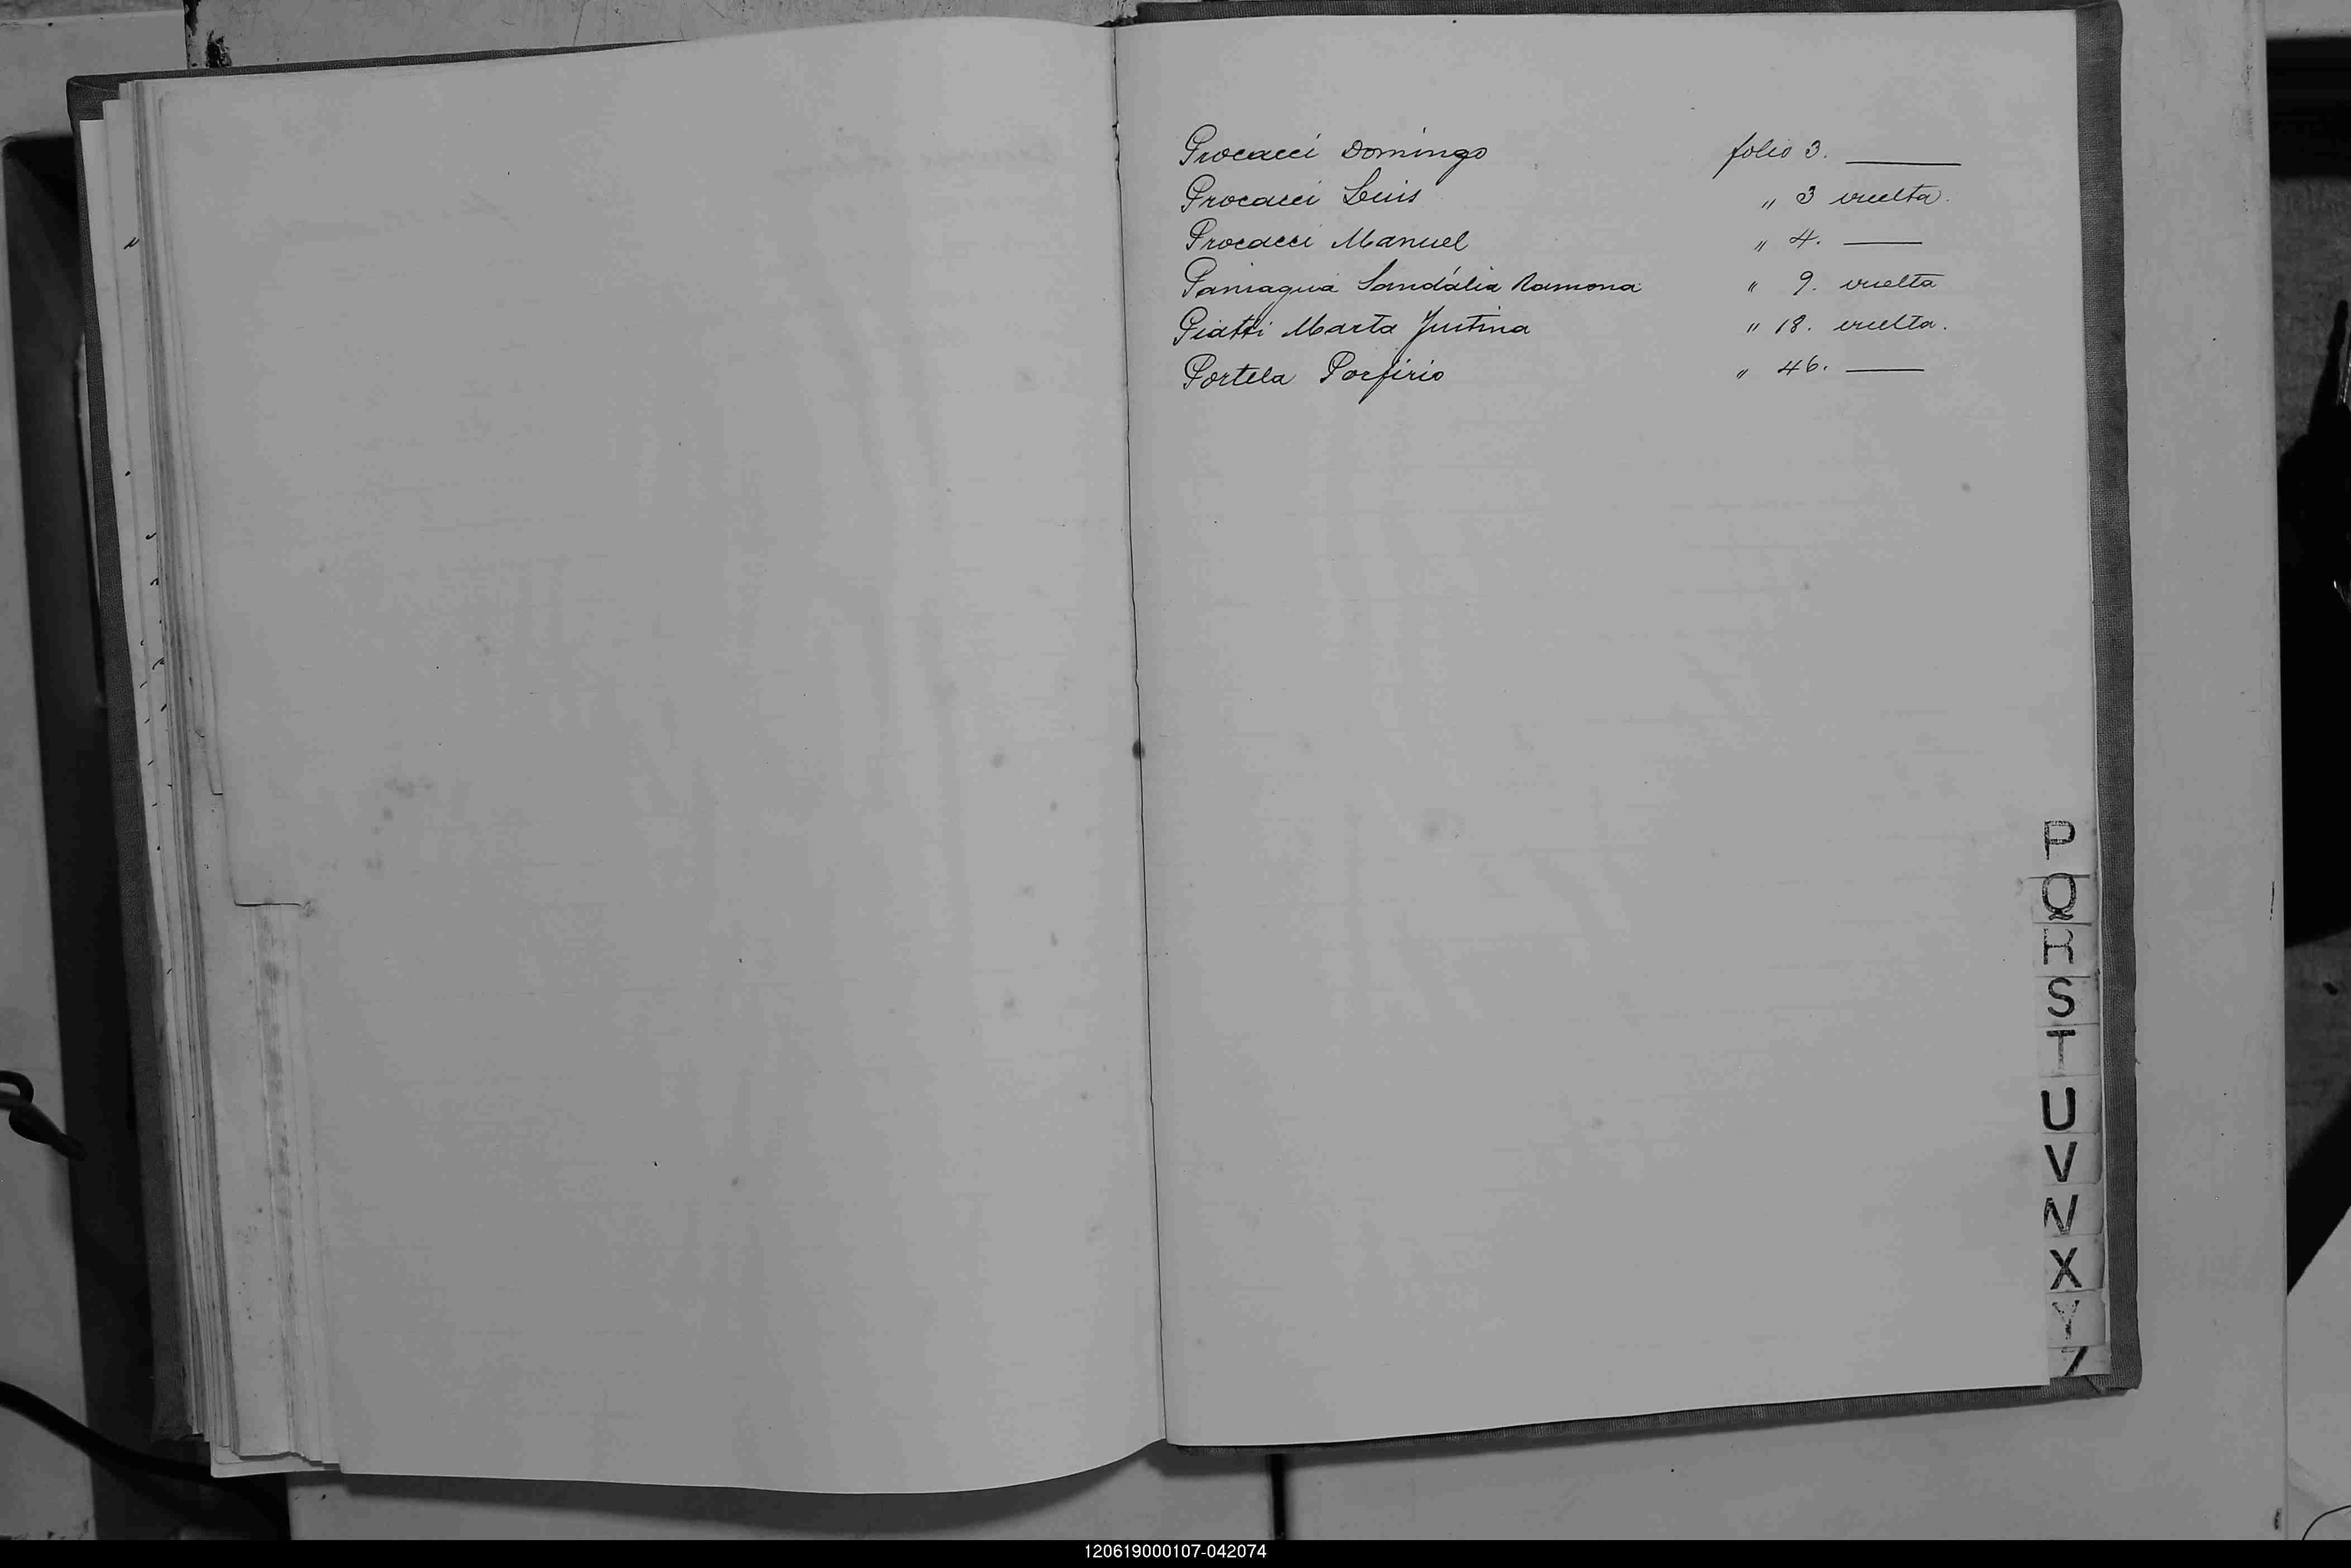 Procacci Domingo folio 3. ———
Procacci Luis " 3 vuelta.
Procacci Manuel " 4. ———
Paniagua Sandália Ramona " 9. vuelta
Piatti Marta Justina " 18. vuelta.
Portela Porfirio " 46. ———
P
Q
R
S
T
U
V
W
X
Y
Z
120619000107-042074